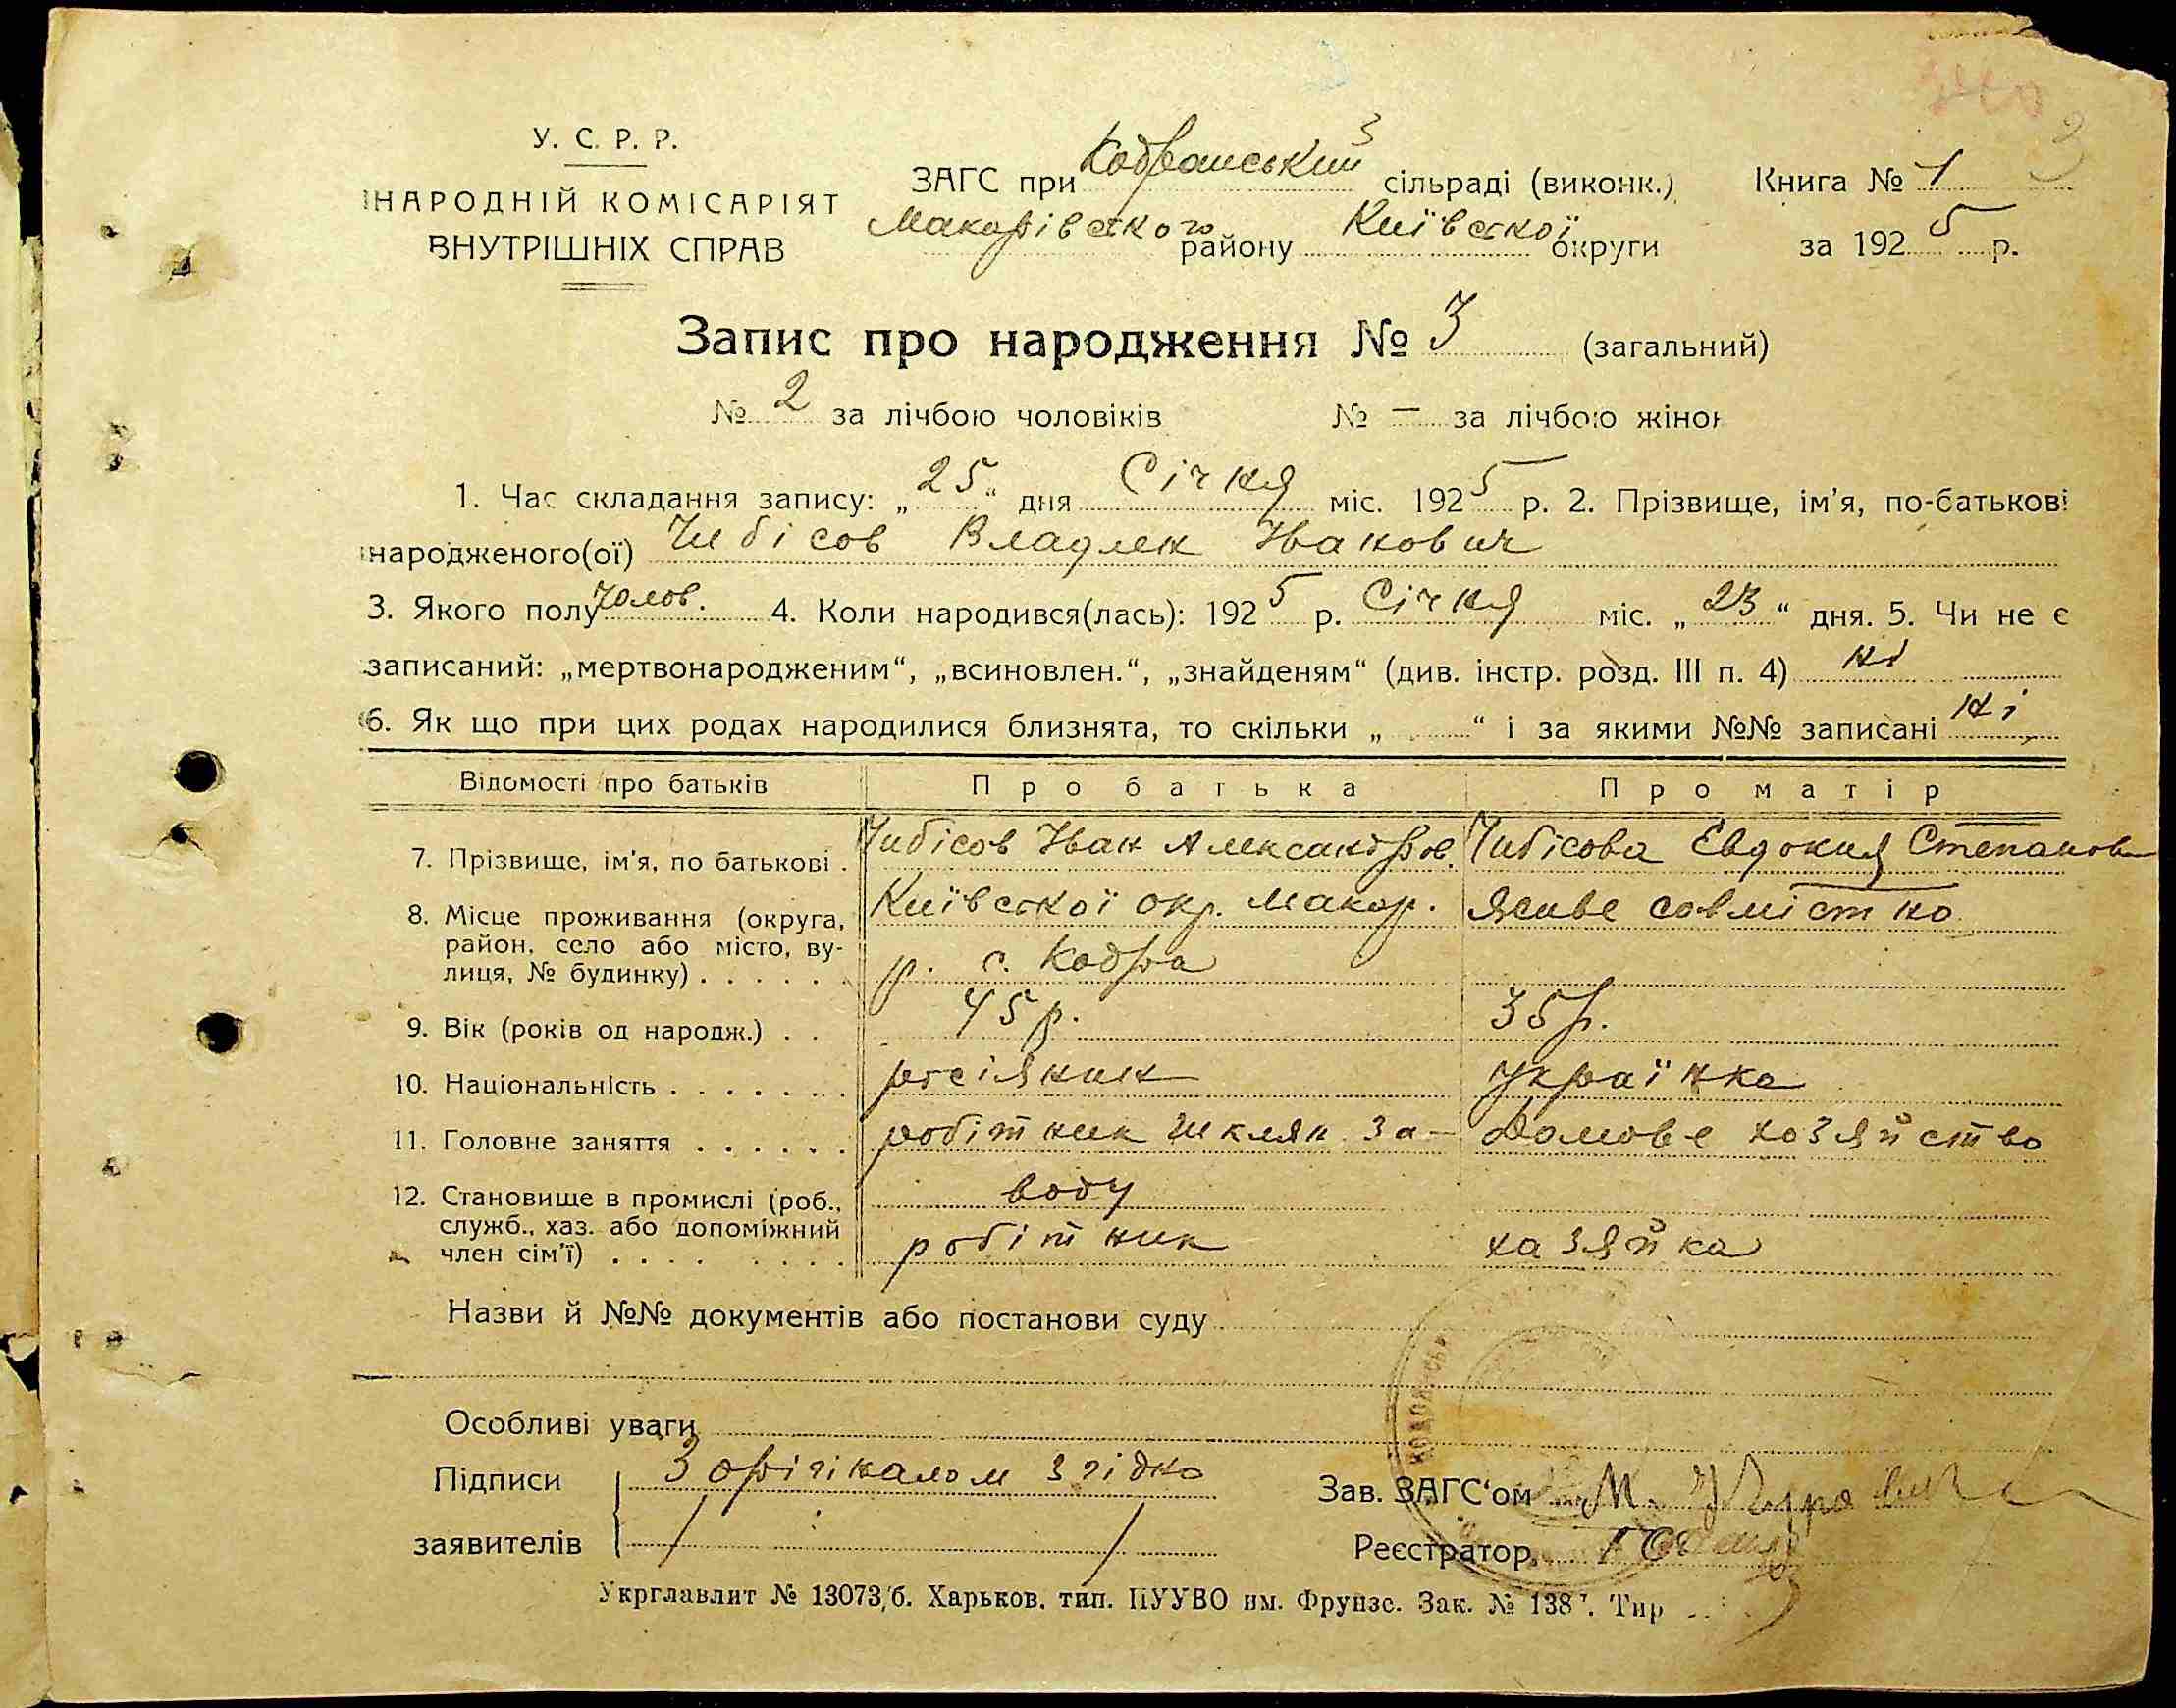 У. С. Р. Р.
НАРОДНІЙ КОМІСАРІЯТ
ВНУТРІШНІХ СПРАВ
ЗАГС при Кодранський сільраді (виконк.)
Макарівского району Київскої округи
Книга № 1
за 1925 р.
3
Запис про народження № 3 (загальний)
№ 2 за лічбою чоловіків № — за лічбою жінок
1. Час складання запису: „25“ дня Січня міс. 1925 р. 2. Прізвище, ім'я, по-батькові
народженого(ої) Чибісов Владлен Іванович
3. Якого полу чолов. 4. Коли народився(лась): 1925 р. Січня міс. „23“ дня. 5. Чи не є
записаний: „мертвонародженим“, „всиновлен.“, „знайденям“ (див. інстр. розд. III п. 4) ні
6. Як що при цих родах народилися близнята, то скільки „ “ і за якими №№ записані ні
Відомості про батьків Про батька Про матір
7. Прізвище, ім'я, по батькові . Чибісов Іван Александров. Чибісова Евдокия Степанов
8. Місце проживання (округа, район, село або місто, вулиця, № будинку) . . . . . . Київскої окр. Макар. Живе совмістно
р. с. Кодра
9. Вік (років од народж.) . . 45 р. 35 р.
10. Національність . . . . . . . росіянин українка
11. Головне заняття . . . . . . робітник шклян. за- Домове хозяйство
воду
12. Становище в промислі (роб., служб., хаз. або допоміжний член сім'ї) . . . . . . . . робітник хазяйка
Назви й №№ документів або постанови суду
Особливі уваги
Підписи
заявителів
З орігіналом згідно
Зав. ЗАГС'ом М.
Реєстратор
Укрглавлит № 13073/б. Харьков. тип. ПУУВО им. Фрунзе. Зак. № 138